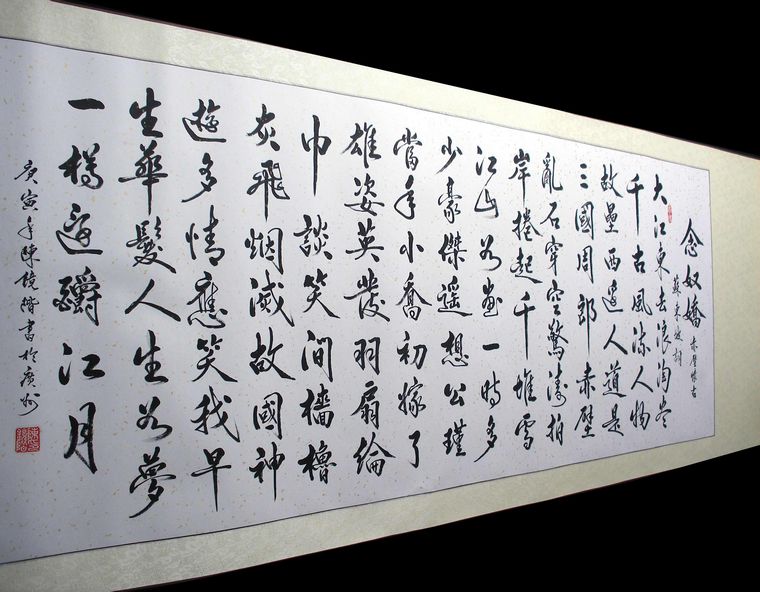 念奴嬌 赤壁懷古
蘇東坡詞
大江東去浪淘尽
千古風流人物
故壘西邊人道是
三國周郎赤壁
亂石穿空驚濤拍
岸捲起千堆雪
江山如畫一時多
少豪傑遥想公瑾
當年小喬初嫁了
雄姿英發羽扇綸
巾談笑間檣櫓
灰飛烟滅故國神
遊多情應笑我早
生華髮人生如夢
一樽還酹江月
庚寅年陳鏡階書於廣州